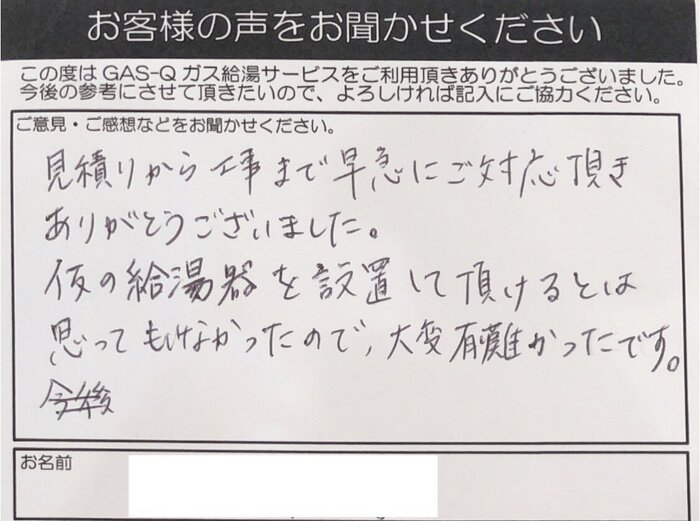 お客様の声をお聞かせください
この度はGAS-Qガス給湯サービスをご利用頂きありがとうございました。
今後の参考にさせて頂きたいので、よろしければ記入にご協力ください。
ご意見・ご感想などをお聞かせください。
見積りから工事まで早急にご対応頂き
ありがとうございました。
仮の給湯器を設置して頂けるとは
思ってもいなかったので、大変有難かったです。
今後
お名前